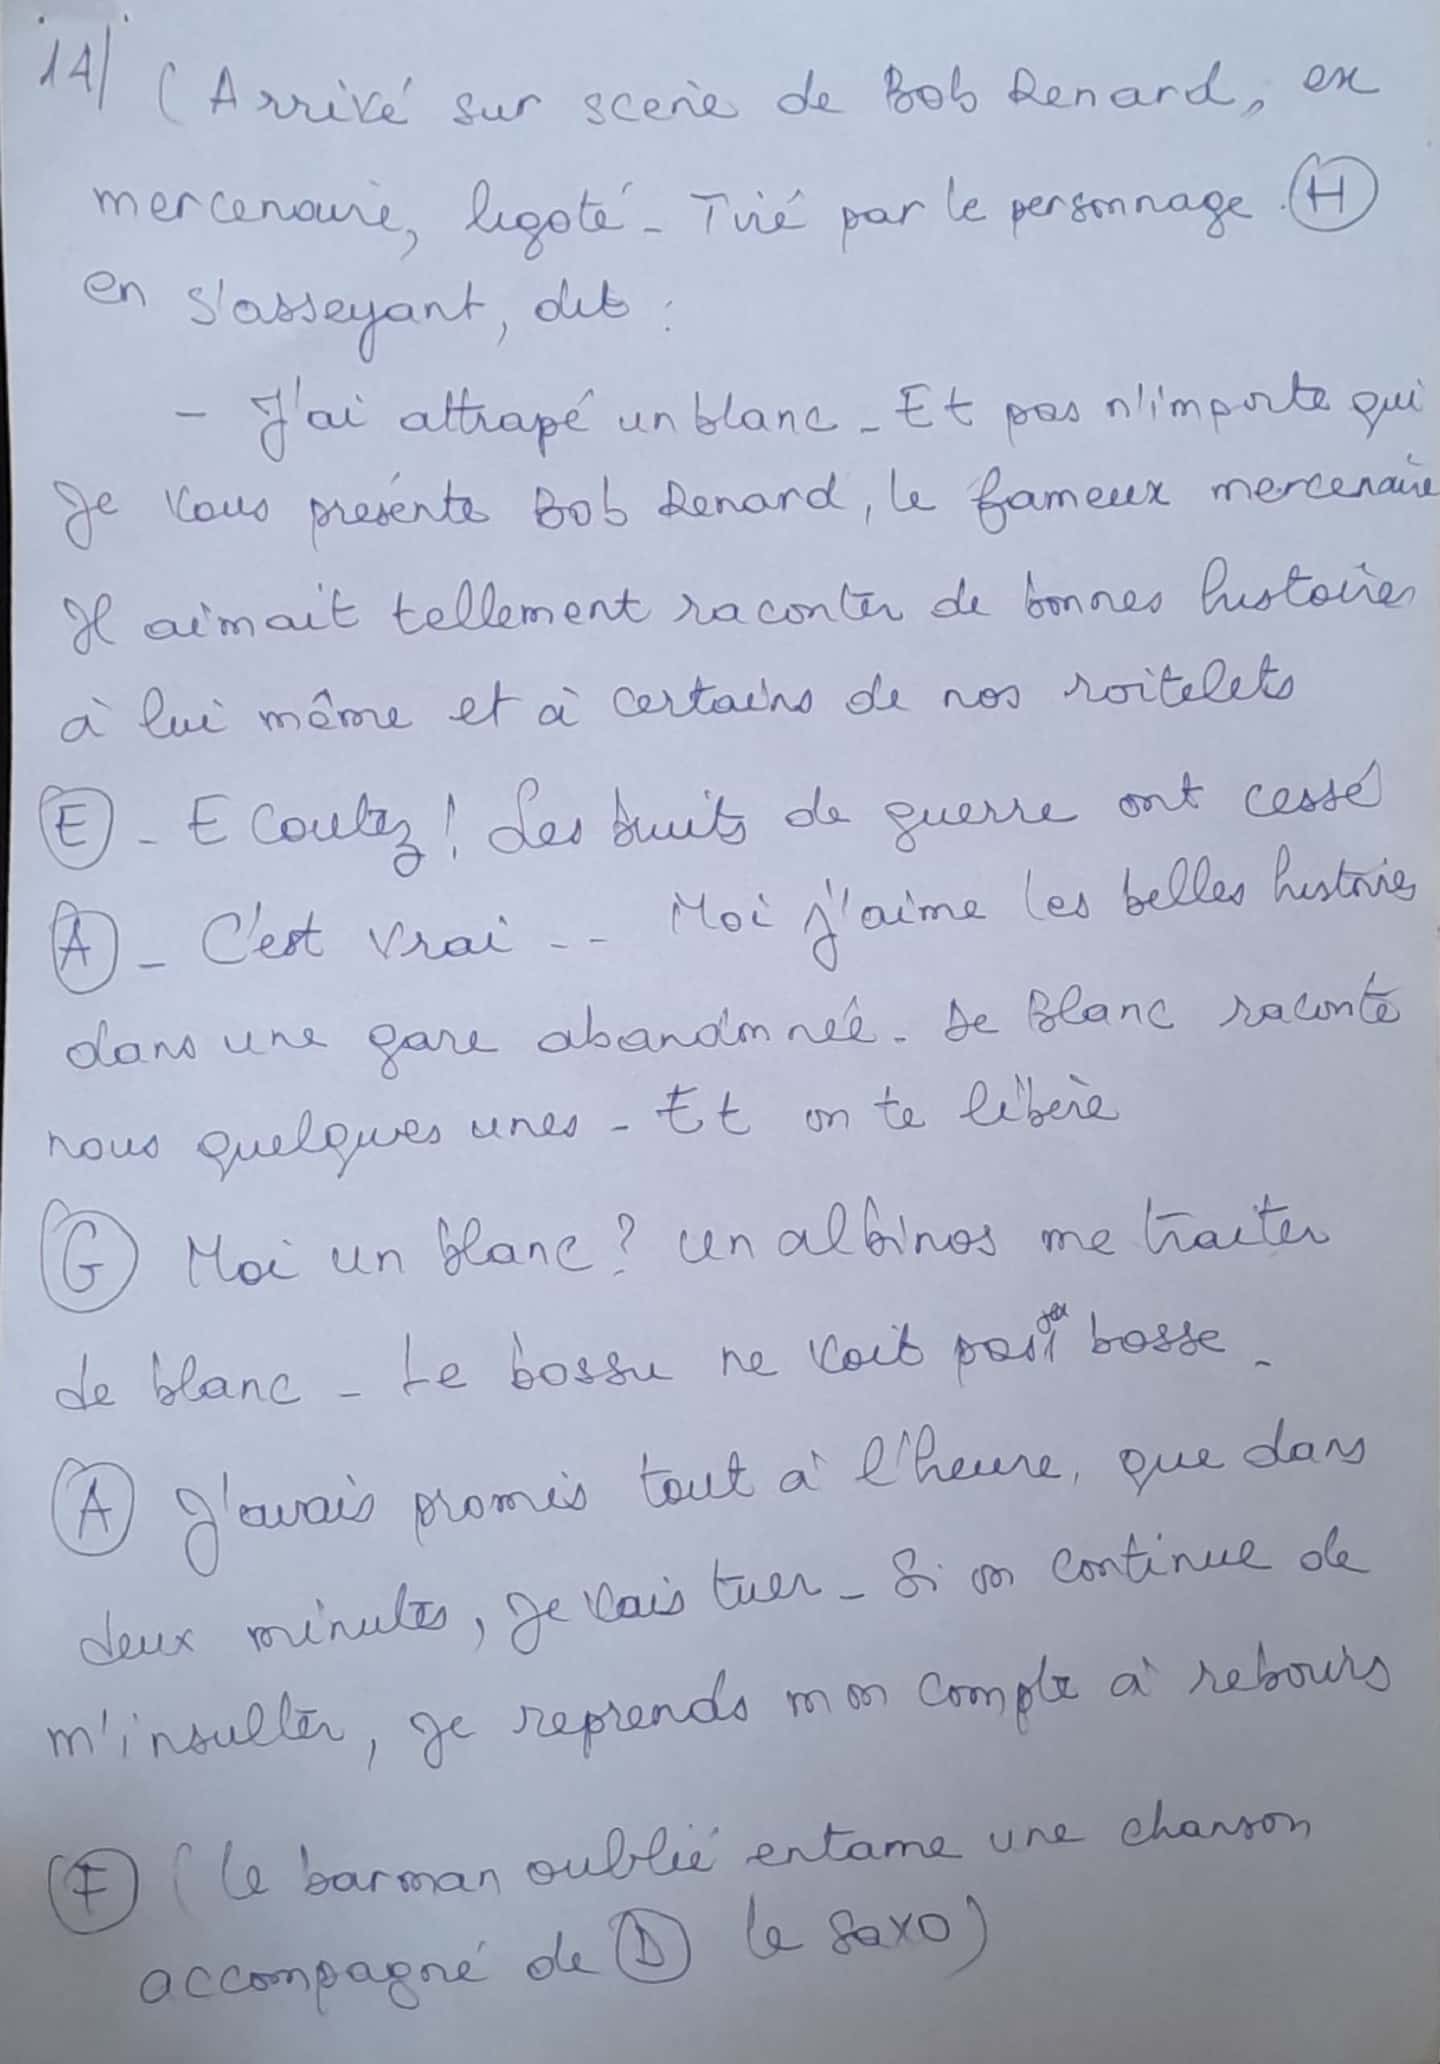 14/ (Arrivé sur scene de Bob Denard, ex
mercenaire, ligoté - Tiré par le personnage (H)
en s'asseyant, dit :
- J'ai attrapé un blanc - Et pas n'importe qui
Je vous présente Bob Denard, le fameux mercenaire
Il aimait tellement raconter de bonnes histoires
à lui même et à certains de nos roitelets
(E) - Ecoutez ! Les bruits de guerre ont cessé
(A) - C'est vrai... Moi j'aime les belles histoires
dans une gare abandonnée - Le Blanc raconte
nous quelques unes - Et on te libère
(G) Moi un blanc ? Un albinos me traiter
de blanc - Le bossu ne voit pas sa bosse -
(A) J'avais promis tout à l'heure, que dans
deux minutes, je vais tuer - Si on continue de
m'insulter, je reprends mon compte à rebours
(F) (le barman oublié entame une chanson
accompagné de (D) le saxo)